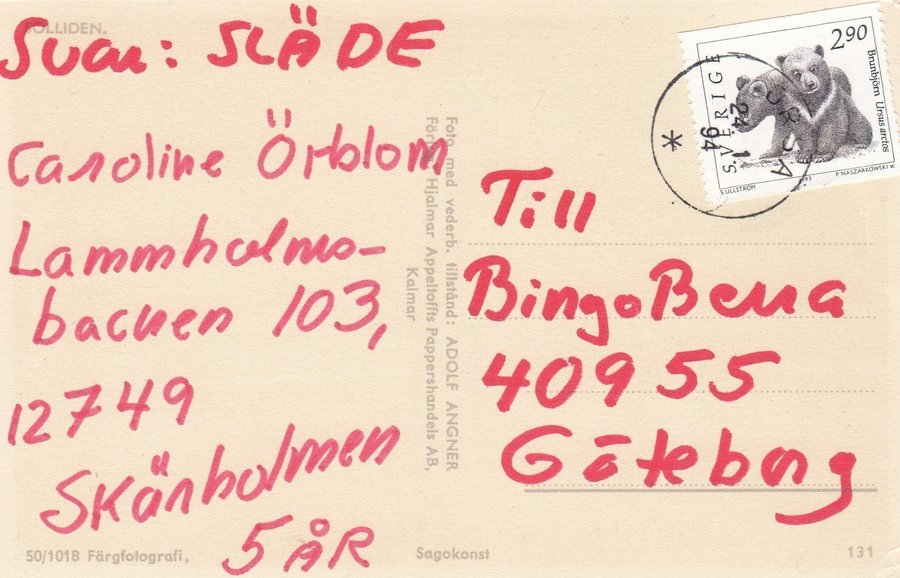 SOLLIDEN.
Svar: SLÄDE
Caroline Örblom
Lammholms-
backen 103,
12749
Skänholmen
5 ÅR
50/101B Färgfotografi.
Foto med vederb. tillstånd: ADOLF ANGNER
Hjalmar Appeltoffts Pappershandels AB,
Kalmar
Sagokonst
SVERIGE
2.90
Brunbjörn Ursus arctos
S.ULLSTRÖM
P NASZARKOWSKI SC
24 1
94
Till
BingoBerra
40955
Göteborg
131